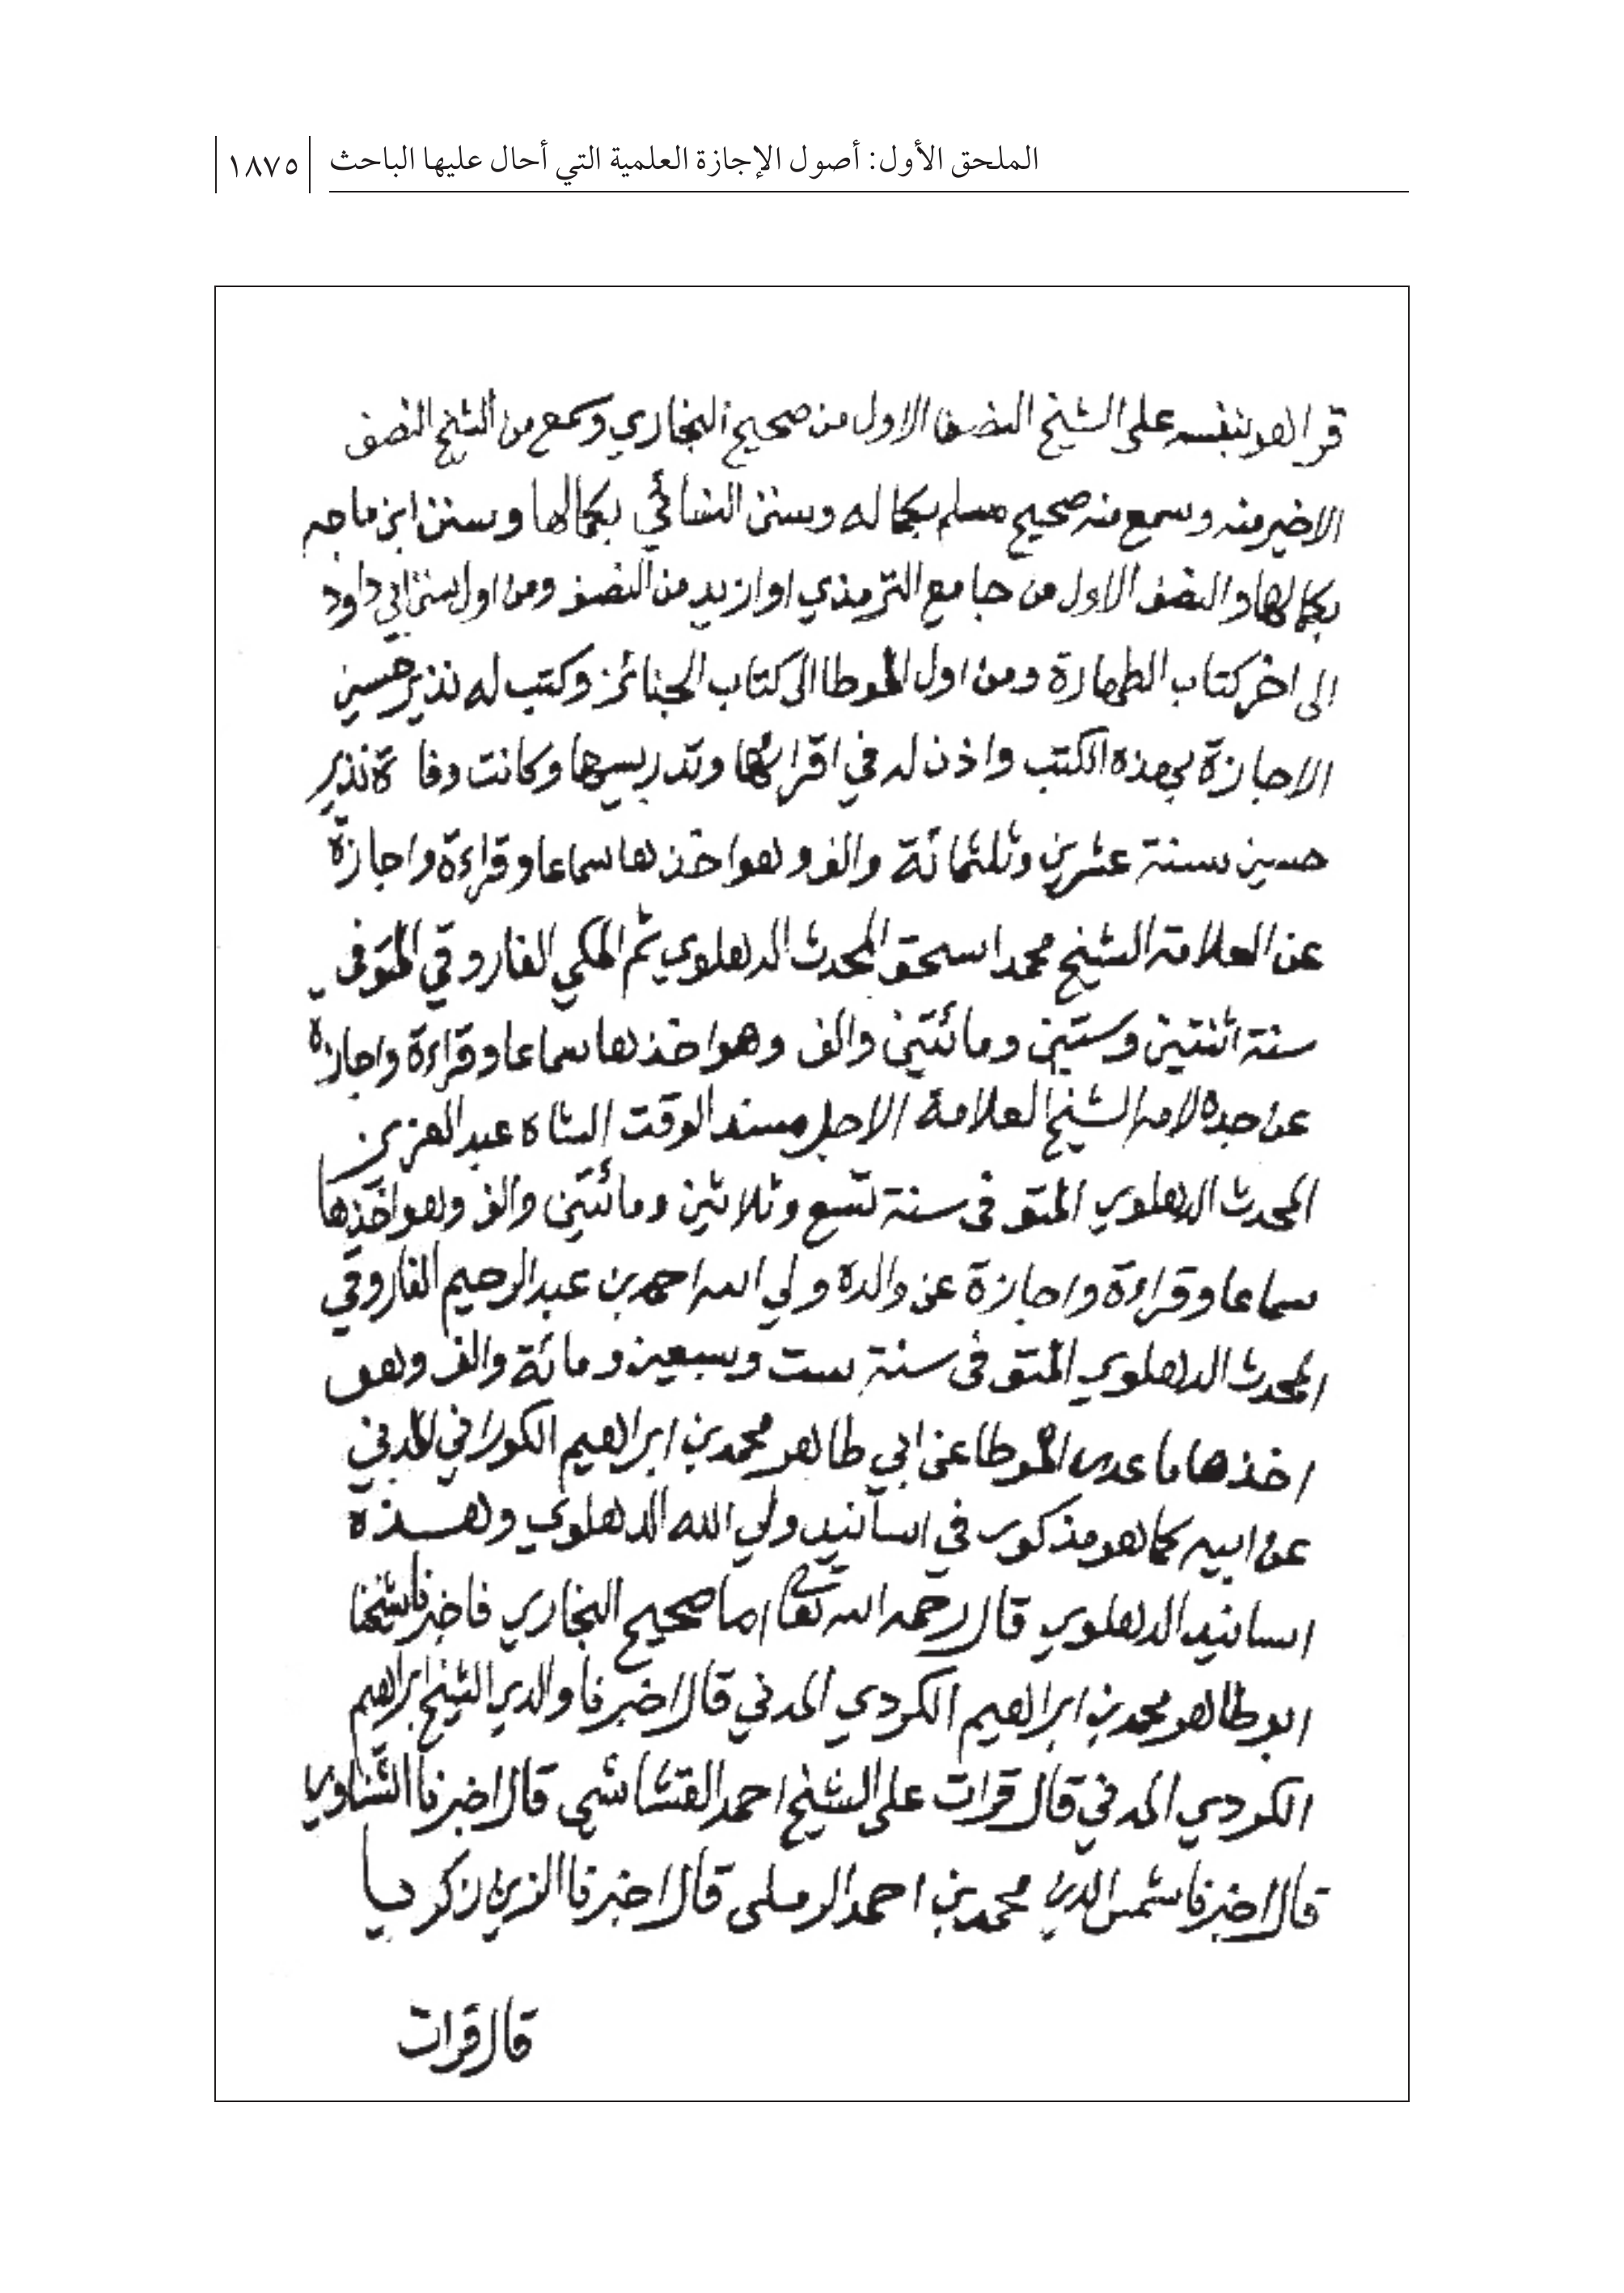 الملحق الأول: أصول الإجازة العلمية التي أحال عليها الباحث ١٨٧٥
قرا هو بنفسه على الشيخ النصف الاول من صحيح البخاري وسمع من الشيخ النصف
الاخير منه وسمع منه صحيح مسلم بكماله وسنن النسائي بكمالها وسنن ابن ماجه
بكمالها والنصف الاول من جامع الترمذي او ازيد من النصف ومن اول سنن ابي داود
الى اخر كتاب الطهارة ومن اول الموطا الى كتاب الجنائز وكتب له نذير حسين
الاجازة بهذه الكتب واذن له في اقرائها وتدريسها وكانت وفاة نذير
حسين سنة عشرين وثلثمائة والف وهو اخذها سماعا وقراءة واجازة
عن العلامة الشيخ محمد اسحق المحدث الدهلوي ثم المكي الفاروقي المتوفى
سنة اثنتين وستين ومائتين والف وهو اخذها سماعا وقراءة واجازة
عن جده لامه الشيخ العلامة الاجل مسند الوقت الشاه عبد العزيز
المحدث الدهلوي المتوفى سنة تسع وثلاثين ومائتين والف وهو اخذها
سماعا وقراءة واجازة عن والده ولي الله احمد بن عبد الرحيم الفاروقي
المحدث الدهلوي المتوفى سنة ست وسبعين ومائة والف وهو
اخذها ما عدى الموطا عن ابي طاهر محمد بن ابراهيم الكوراني المدني
عن ابيه كما هو مذكور في اسانيد ولي الله الدهلوي وهذه
اسانيد الدهلوي قال رحمه الله تعالى اما صحيح البخاري فاخبرنا شيخنا
ابو طاهر محمد بن ابراهيم الكردي المدني قال اخبرنا والدي الشيخ ابراهيم
الكردي المدني قال قرات على الشيخ احمد القشاشي قال اخبرنا الشناوي
قال اخبرنا شمس الدين محمد بن احمد الرملي قال اخبرنا الزين زكريا
قال قرات